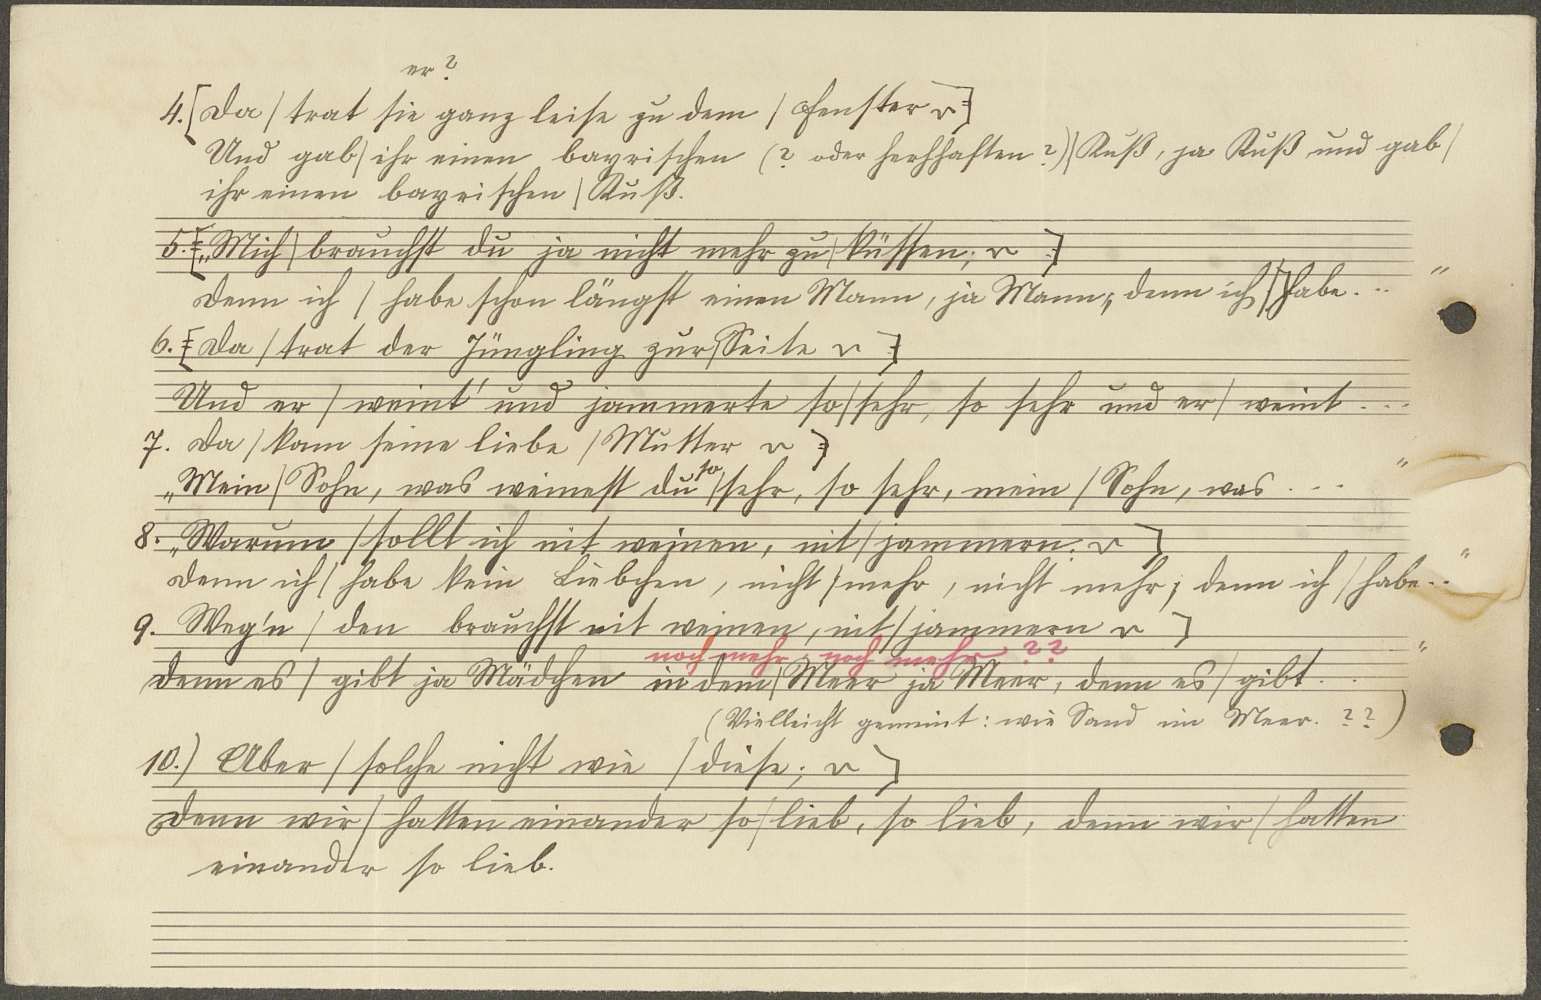 er?
4. [Da / trat sie ganz leise zu dem / Fenster :]
Und gab / ihr einen bayrischen (? oder herzhaften ?) / Kuß, ja Kuß und gab /
ihr einen bayrischen / Kuß.
5. [: „Mich / brauchst du ja nicht mehr zu / küssen; :]
Denn ich / habe schon längst einen Mann, ja Mann, denn ich / habe ... "
6. [: Da / trat der Jüngling zur / Seite :]
Und er / weint' und jammerte so / sehr, so sehr und er / weint ...
7. Da / kam seine liebe / Mutter :]
„Mein / Sohn, was weinest du so / sehr, so sehr, mein / Sohn, was ... "
8. „Warum / sollt ich nit weinen, nit / jammern; ]
Denn ich / habe kein Liebchen, nicht / mehr, nicht mehr; denn ich / habe .. "
9. Weg'n / den brauchst nit weinen, nit / jammern ]
noch mehr, noch mehr ??
Denn es / gibt ja Mädchen in dem / Meer ja Meer, denn es / gibt . . "
(Vielleicht gemeint: wie Sand im Meer. ??)
10.) Aber / solche nicht wie / diese; ]
Denn wir / hatten einander so / lieb, so lieb, denn wir / hatten
einander so lieb.